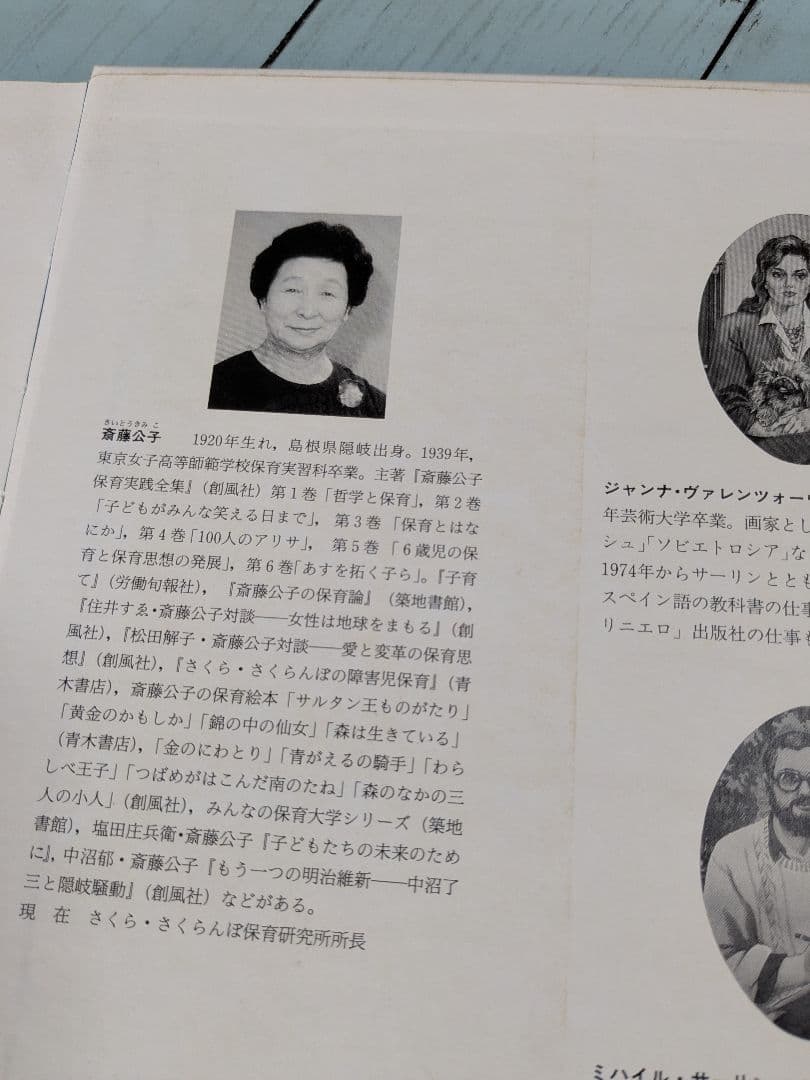 さいとうきみ こ
斎藤公子　1920年生れ，島根県隠岐出身。1939年，
東京女子高等師範学校保育実習科卒業。主著『斎藤公子
保育実践全集』(創風社) 第1巻「哲学と保育」，第2巻
「子どもがみんな笑える日まで」，第3巻「保育とはな
にか」，第4巻「100人のアリサ」，第5巻「6歳児の保
育と保育思想の発展」，第6巻「あすを拓く子ら」。『子育
て』(労働旬報社)，『斎藤公子の保育論』(築地書館)，
『住井すゑ・斎藤公子対談――女性は地球をまもる』(創
風社)，『松田解子・斎藤公子対談――愛と変革の保育思
想』(創風社)，『さくら・さくらんぼの障害児保育』(青
木書店)，斎藤公子の保育絵本「サルタン王ものがたり」
「黄金のかもしか」「錦の中の仙女」「森は生きている」
(青木書店)，「金のにわとり」「青がえるの騎手」「わら
しべ王子」「つばめがはこんだ南のたね」「森のなかの三
人の小人」(創風社)，みんなの保育大学シリーズ (築地
書館)，塩田庄兵衛・斎藤公子『子どもたちの未来のため
に』，中沼郁・斎藤公子『もう一つの明治維新――中沼了
三と隠岐騒動』(創風社) などがある。
現　在　さくら・さくらんぼ保育研究所所長
ジャンナ・ヴァレンツォー
年芸術大学卒業。画家とし
シュ」「ソビエトロシア」な
1974年からサーリンととも
スペイン語の教科書の仕事
リニエロ」出版社の仕事も
ミハイル・サーリン